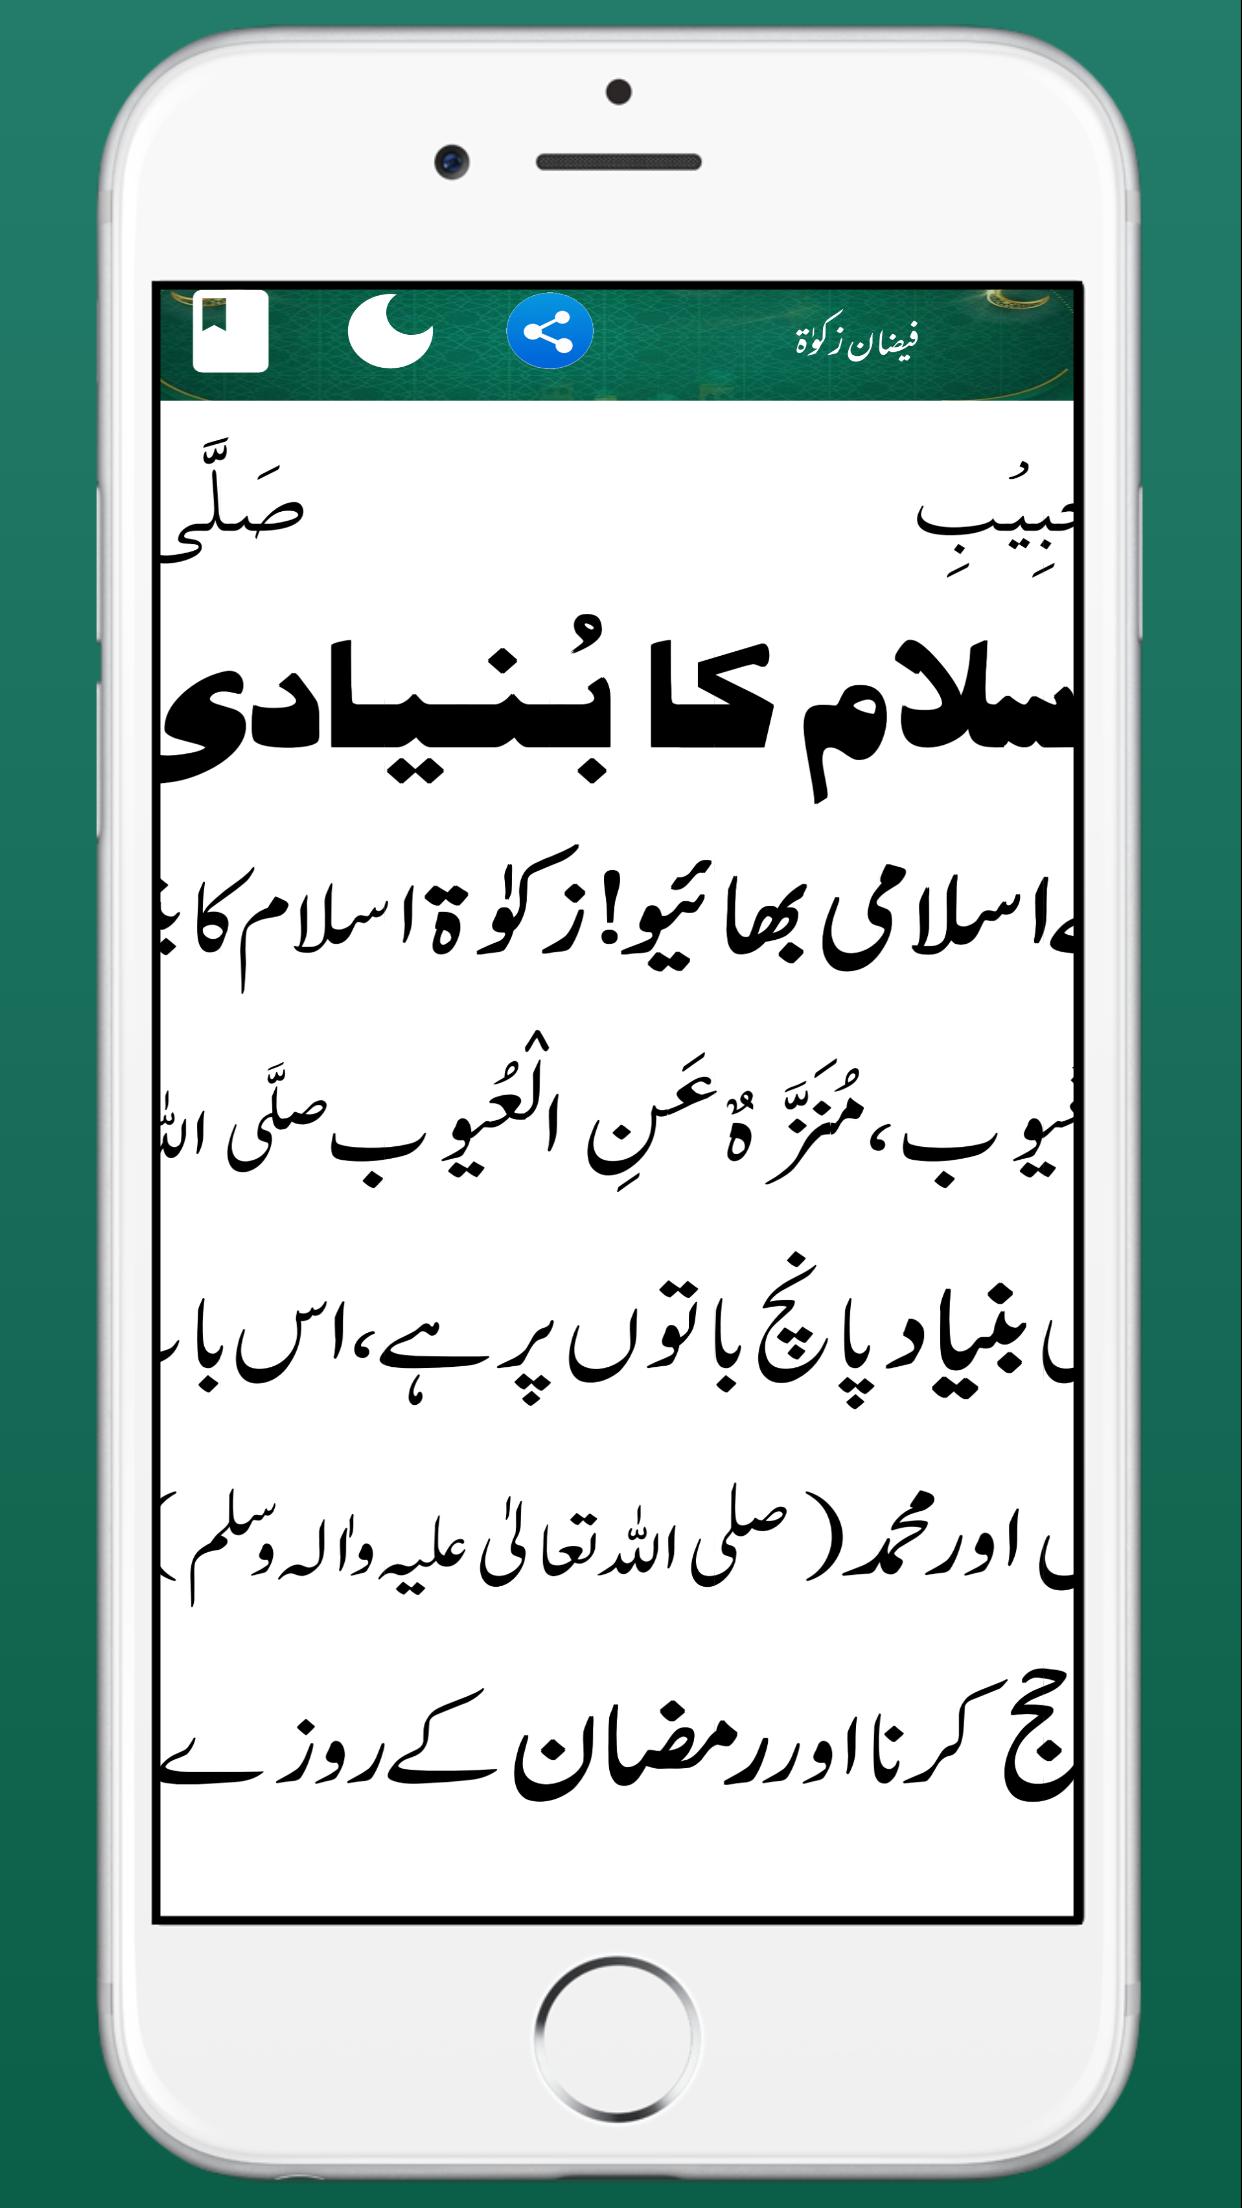 فیضان زکوٰۃ
صَلَّی
سلام کا بُنیادی
اسلامی بھائیو! زکوٰۃ اسلام کا
یوب، مُنَزَّہٌ عَنِ الْعُیوب صلَّی اللہ
بنیاد پانچ باتوں پر ہے، اس
اور محمد (صلی اللہ تعالیٰ علیہ واٰلہ وسلم)
حج کرنا اور رمضان کے روزے